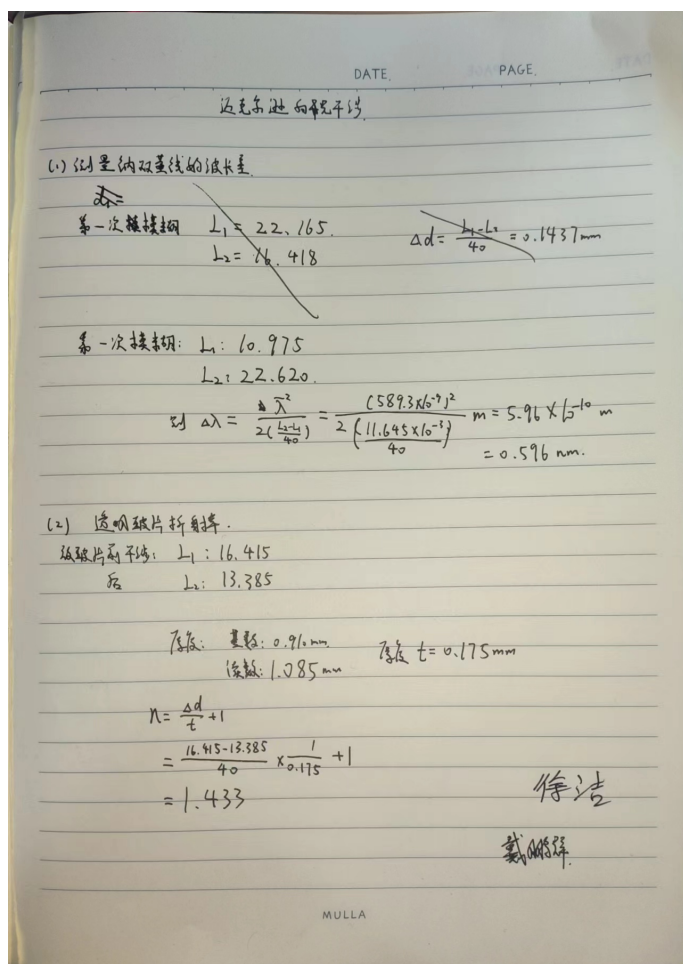 DATE. PAGE.
迈克尔逊白光干涉
(1) 测量纳双黄线的波长差.
第一次模糊 L₁ = 22.165. Δd = (L₁-L₂)/40 = 0.1437mm
L₂ = 16.418
第一次模糊: L₁: 10.975
L₂: 22.620.
则 Δλ = λ̄²/(2((L₂-L₁)/40)) = (589.3×10⁻⁹)²/(2((11.645×10⁻³)/40)) m = 5.96×10⁻¹⁰ m
= 0.596 nm.
(2) 透明玻片折射率.
放玻片前干涉: L₁: 16.415
后 L₂: 13.385
厚度: 基数: 0.910mm. 厚度 t=0.175mm
读数: 1.085mm
n = Δd/t + 1
= (16.415-13.385)/40 × 1/0.175 + 1
= 1.433
徐洁
戴鹏
MULLA